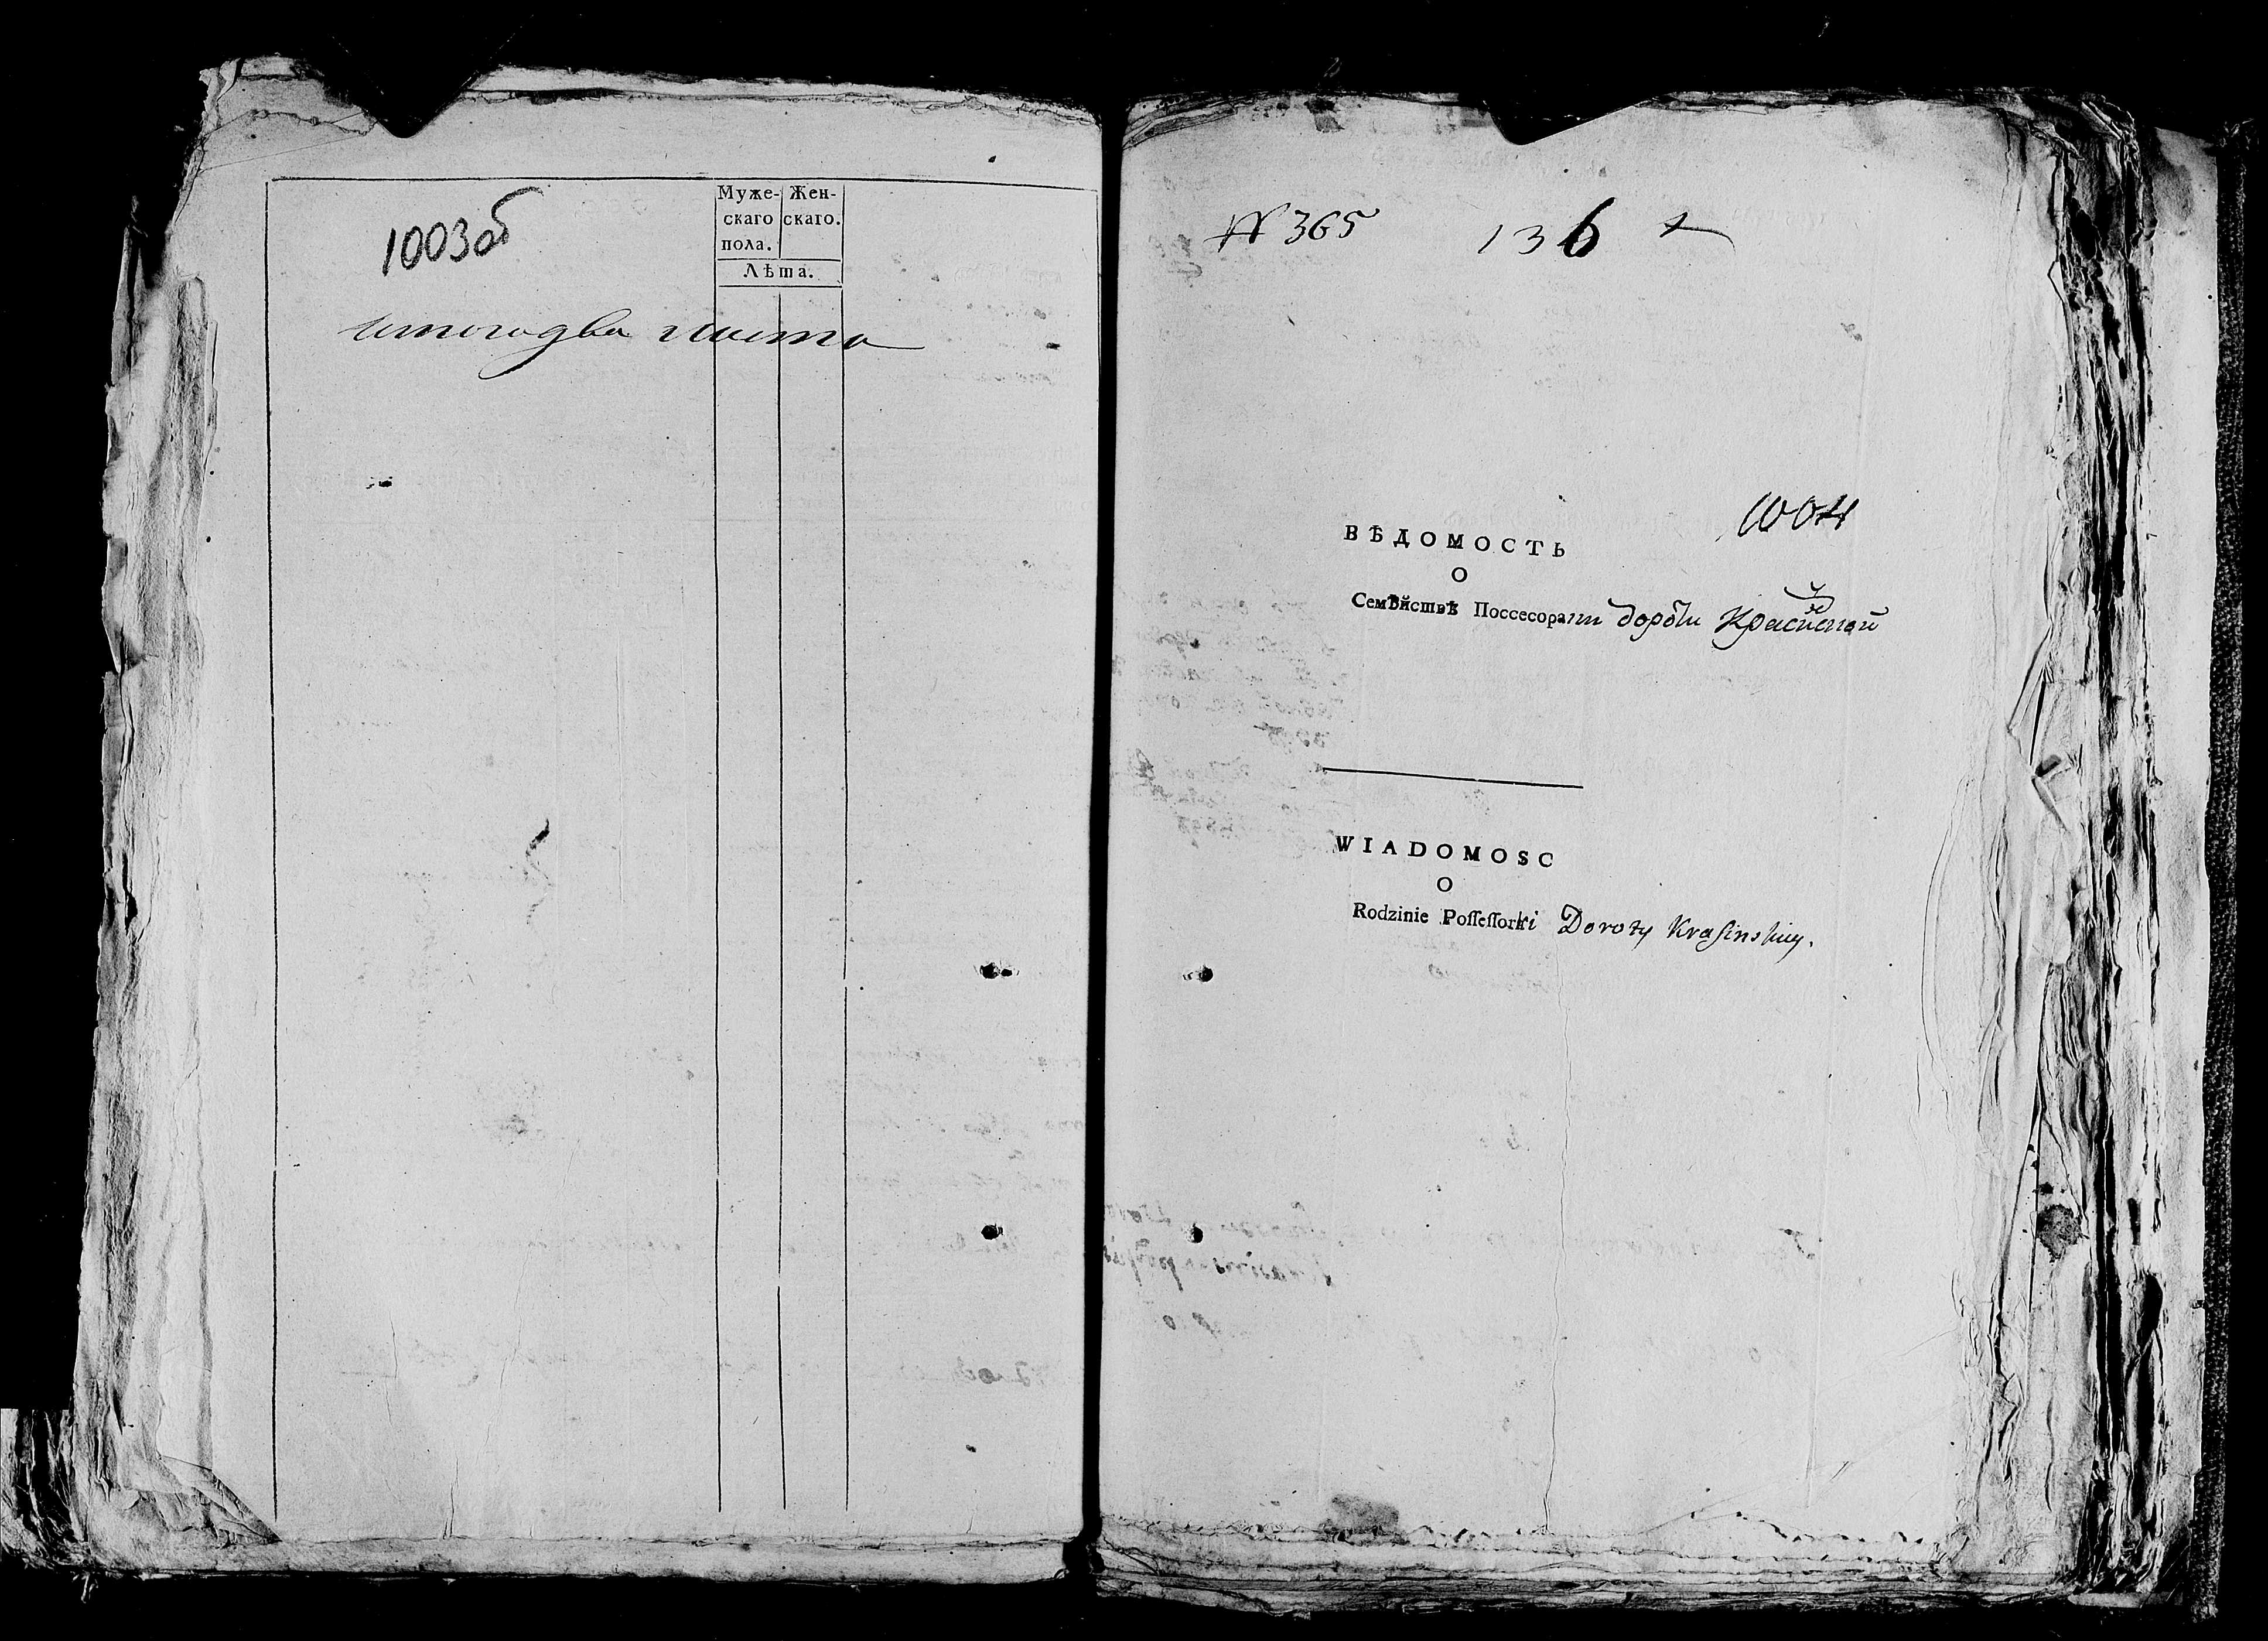 1003об
Муже-
скаго
пола.
Жен-
скаго.
Лѣта.
итого два листа
№ 365
136
1004
ВѢДОМОСТЬ
О
Семѣйствѣ Поссесорки Дороты
WIADOMOSC
O
Rodzinie Poſſeſſorki Doroty Kraſinskiey.